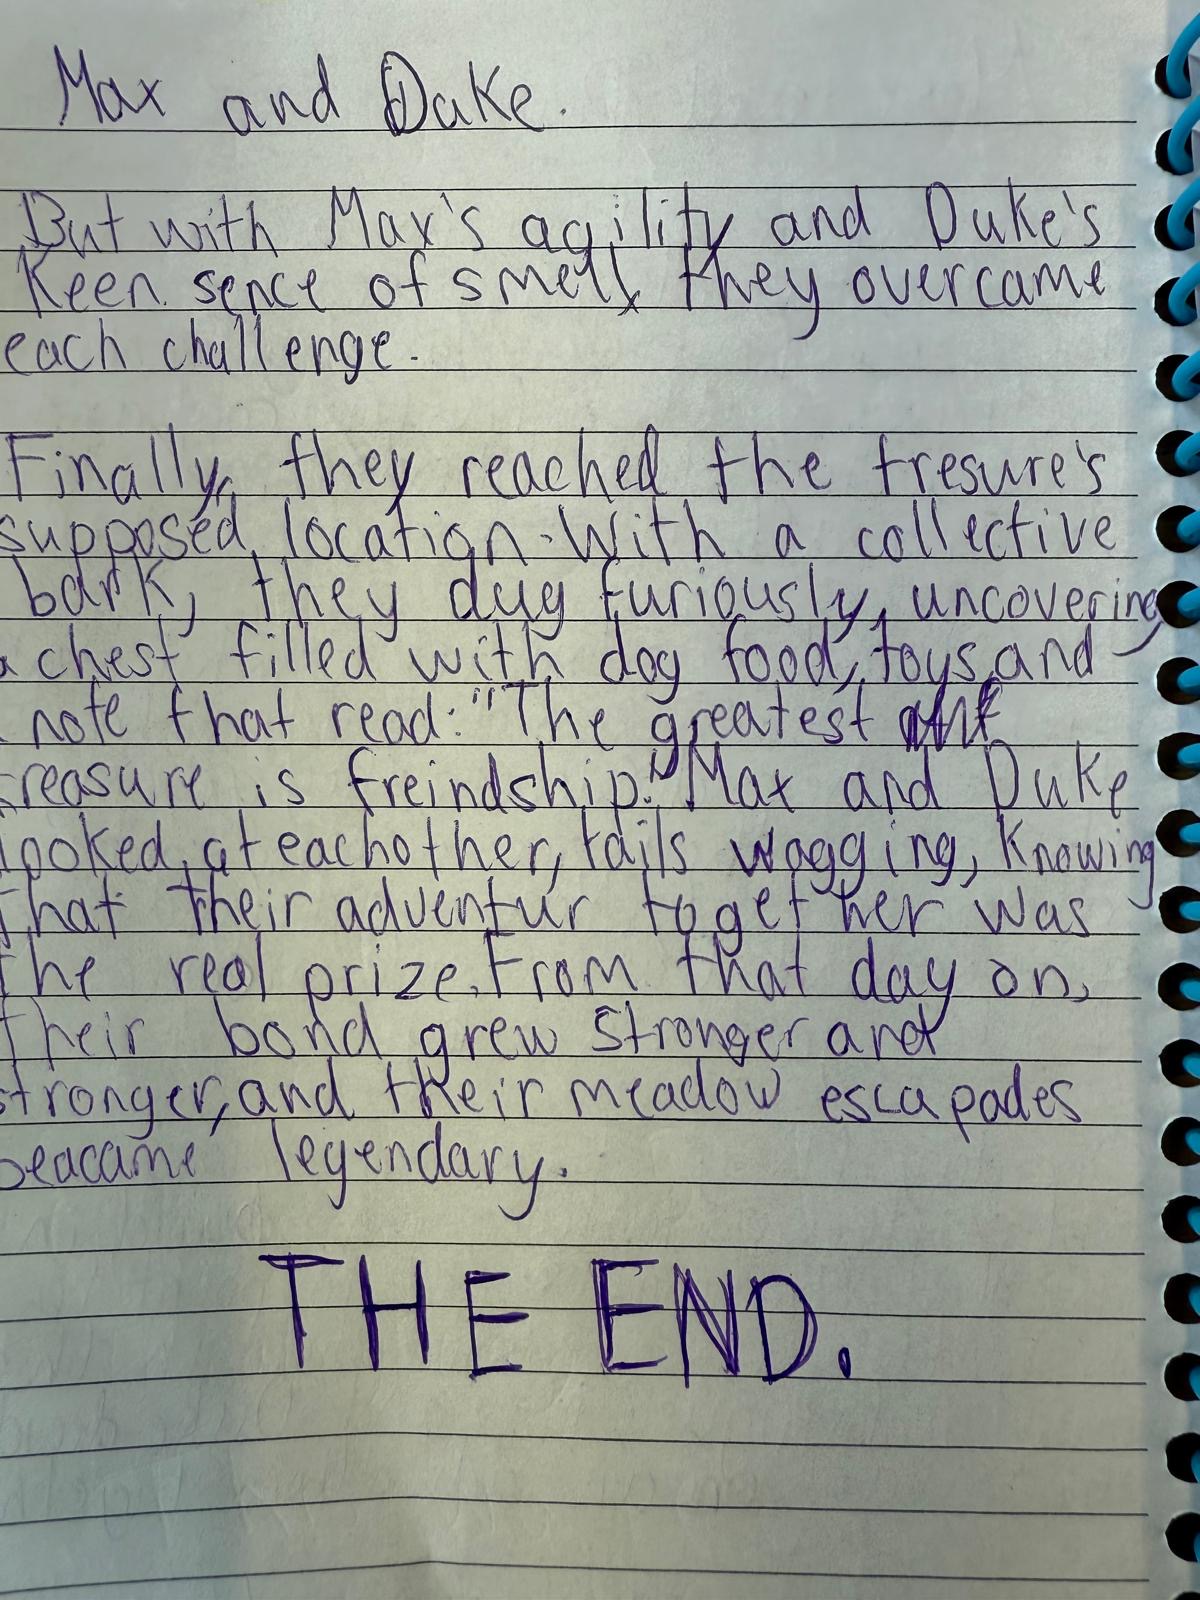 Max and Duke.
But with Max's agility and Duke's
Keen sence of smell, they overcame
each challenge.
Finally, they reached the tresure's
supposed location. With a collective
bark, they dug furiously, uncovering
a chest filled with dog food, toys, and
note that read: "The greatest
treasure is freindship." Max and Duke
looked at eachother, tails wagging, Knowing
that their adventur together was
the real prize. From that day on,
their bond grew stronger and
stronger, and their meadow escapades
beacame legendary.
THE END.